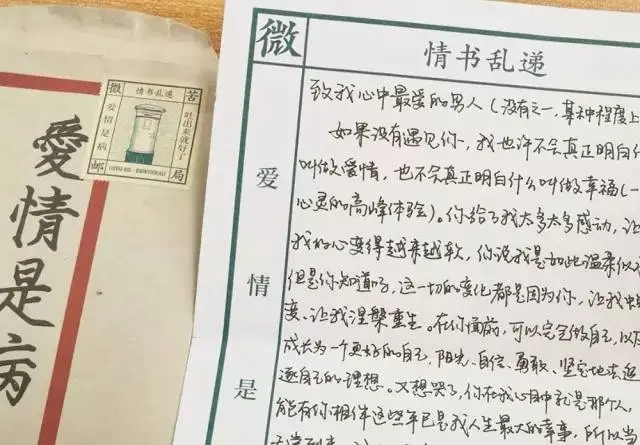 愛情是病
微 情书乱递 苦
爱情是病
吐出来就好了
邮 局
微
情书乱递
爱情是
致我心中最爱的男人(没有之一,某种程度上
如果没有遇见你,我也许不会真正明白什
叫做爱情,也不会真正明白什么叫做幸福(一
心灵的高峰体验)。你给了我太多太多感动,让
我的心变得越来越软,你说我是如此温柔似
但是你知道吗,这一切的变化都是因为你,让我
度、让我涅槃重生。在你面前,可以完全做自己,以
成长为一个更好的自己,阳光、自信、勇敢、坚定地去追
逐自己的理想。又想哭了,你在我心目中就是那个人,
能有你相伴这些年已是我人生最大的幸事,所以当